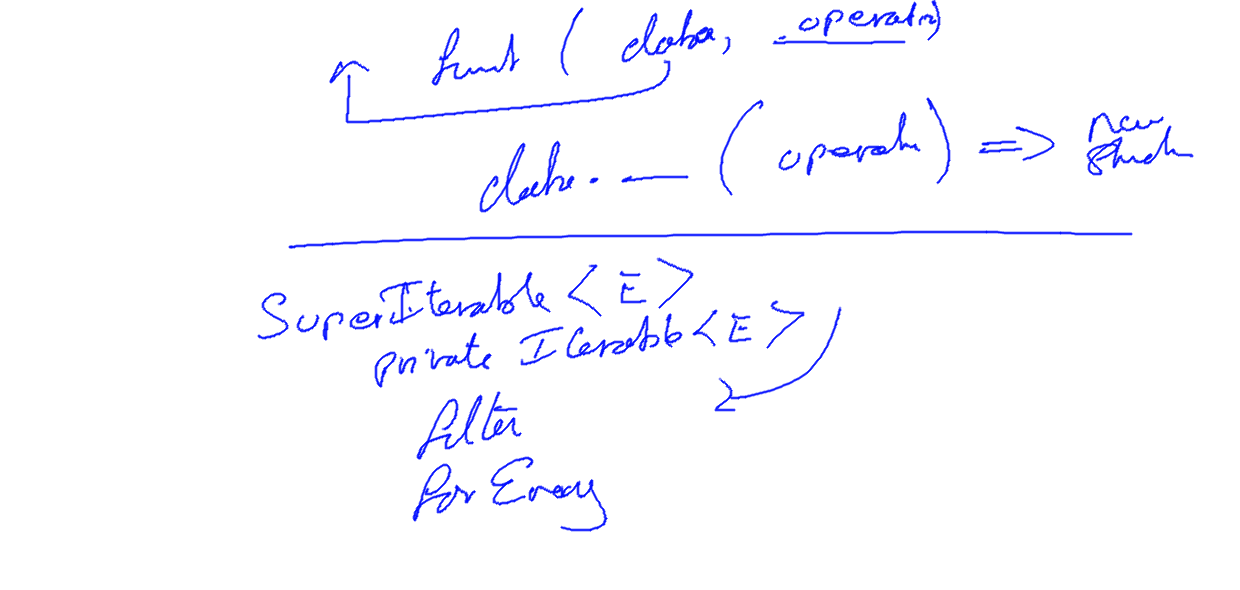 funct ( data, operatn)
data. — ( operatn ) => new
SuperIterable < E >
private Iterable < E >
filter
forEvery